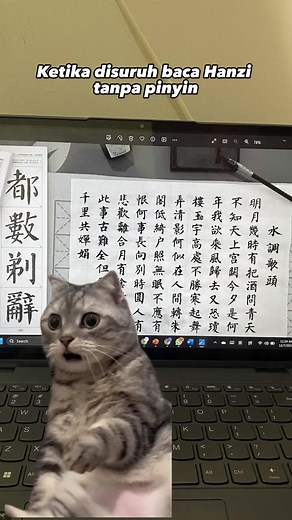 Ketika disuruh baca Hanzi
tanpa pinyin
水調歌頭
明月幾時有把酒問青天
不知天上宮闕今夕是何
年我欲乘風歸去又恐瓊
樓玉宇高處不勝寒起舞
弄清影何似在人間轉朱
閣低綺戶照無眠不應有
恨何事長向別時圓人有
悲歡離合月有
此事古難全但
千里共嬋娟
都數剃辭
Search